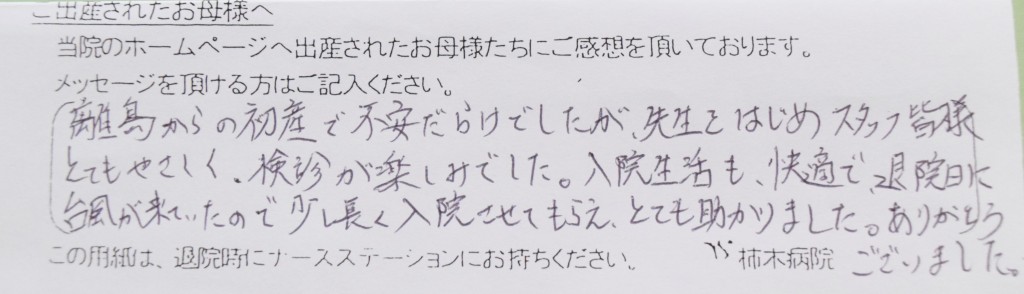 ご出産されたお母様へ
当院のホームページへ出産されたお母様たちにご感想を頂いております。
メッセージを頂ける方はご記入ください。
離島からの初産で不安だらけでしたが、先生をはじめスタッフ皆様
とてもやさしく、検診が楽しみでした。入院生活も、快適で、退院日に
台風が来ていたので少し長く入院させてもらえ、とても助かりました。ありがとう
ございました。
この用紙は、退院時にナースステーションにお持ちください。 柿木病院